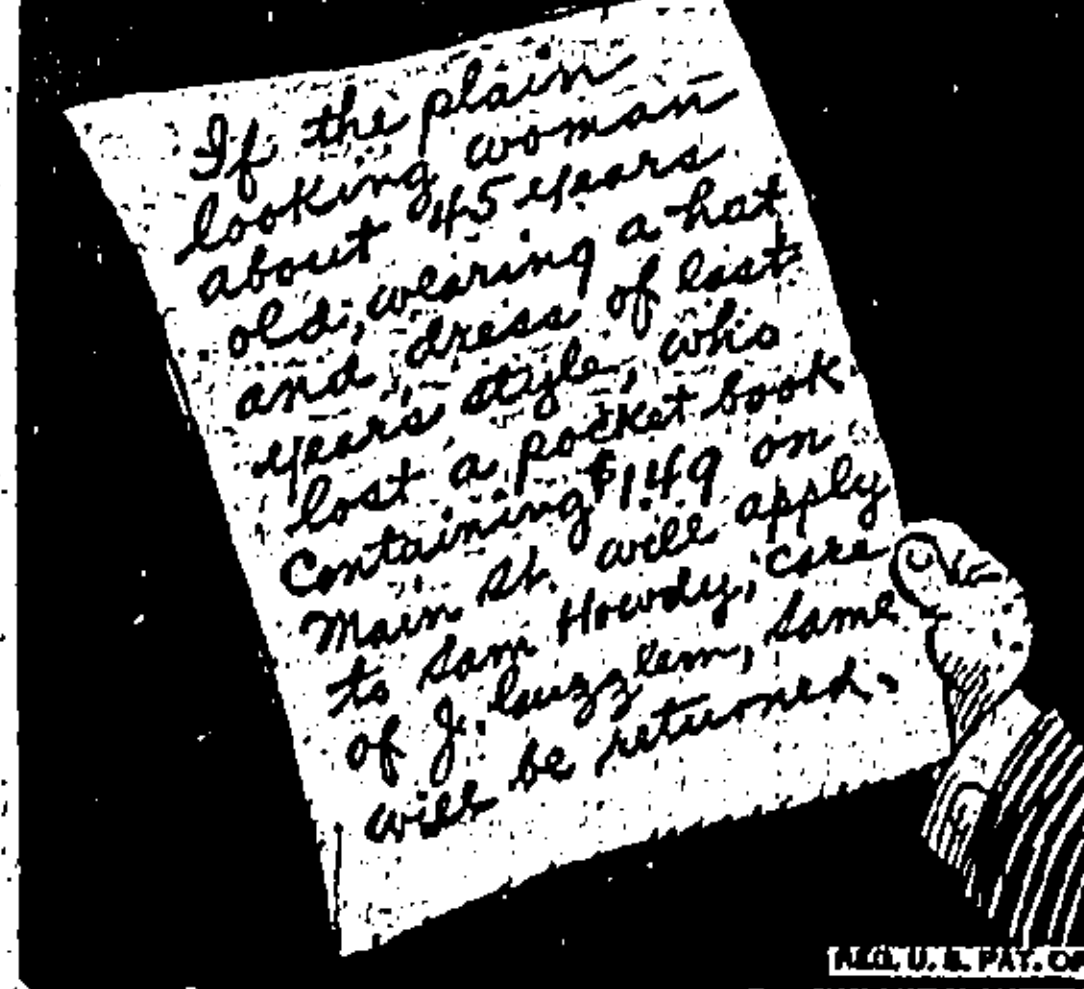 If the plain
looking woman
about 45 years
old, wearing a hat
and dress of last
years style, who
lost a pocket book
Containing $149 on
Main St. will apply
to Sam Howdy, care
of J. Guzzlem, same
will be returned.
REG. U. S. PAT. OF